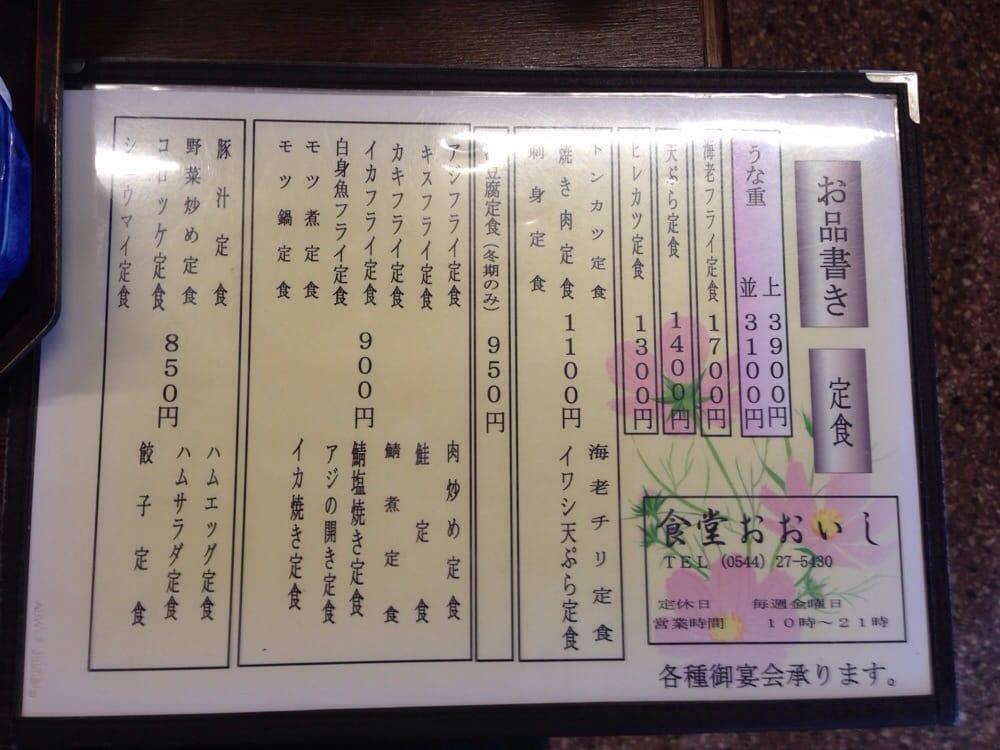 お品書き
定食
うな重
上 3900円
並 3100円
海老フライ定食 1700円
天ぷら定食 1400円
ヒレカツ定食 1300円
トンカツ定食
焼き肉定食
刺身定食
1100円
海老チリ定食
イワシ天ぷら定食
豆腐定食(冬期のみ) 950円
アジフライ定食
キスフライ定食
カキフライ定食
イカフライ定食
白身魚フライ定食
モツ煮定食
モツ鍋定食
900円
肉炒め定食
鮭定食
鯖煮定食
鯖塩焼き定食
アジの開き定食
イカ焼き定食
豚汁定食
野菜炒め定食
コロッケ定食
シュウマイ定食
850円
ハムエッグ定食
ハムサラダ定食
餃子定食
食堂おおいし
TEL (0544) 27-5430
定休日 毎週金曜日
営業時間 10時～21時
各種御宴会承ります。